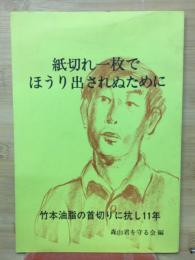 紙切れ一枚で
ほうり出されぬために
竹本油脂の首切りに抗し11年
森山君を守る会 編